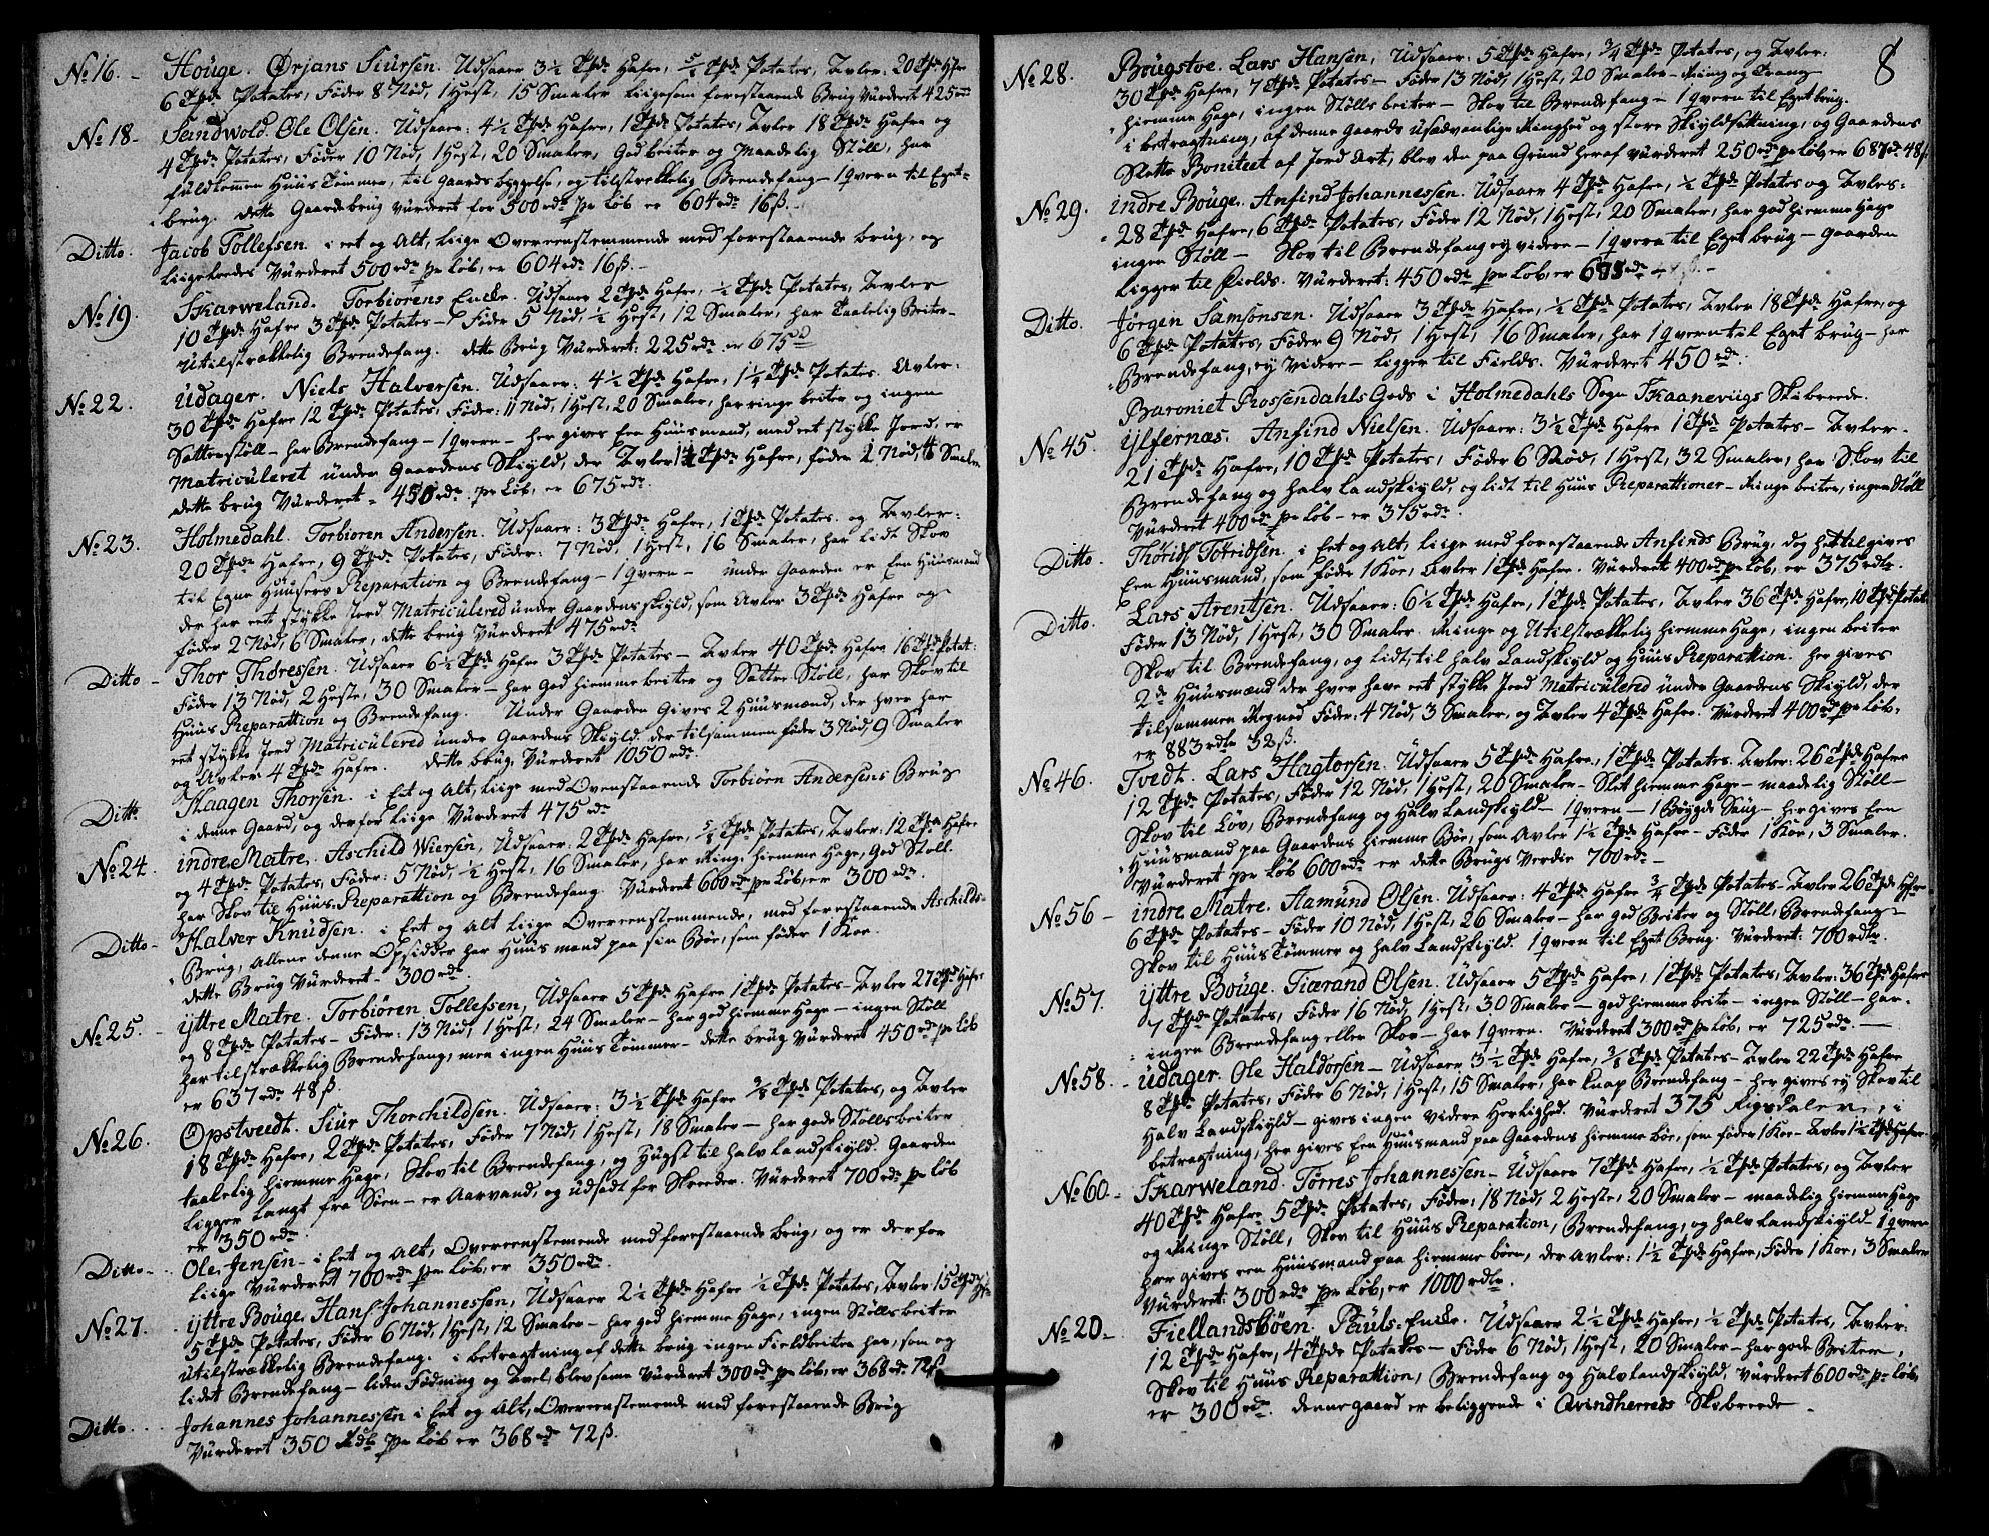 No 16. - Houge. Ørjans Siursen. Udsaaer 3½ Tpd: Hafre, Tpd: Potates, Avler: 20 Tpd: Hfre
6 Tpd: Potates, Føder 8 Nød, 1 Hest, 15 Smaler liigesom forestaaende Brug Vurderet 425
No 18 - Sandwold. Ole Olsen. Udsaaer: 4½ Tpd: Hafre, 1 Tpd: Potates, Avler 18 Tpd: Hafre og
4 Tpd: Potates, Føder 10 Nød, 1 Hest, 20 Smaler, God beiter og Maadelig Støll, har
fuldkommen Huus Tømmer, til Gaards byggelse, og tilstrekkelig Brendefang - 1 qvern til Eget-
brug. dette Gaardebrug vurderet for 500 rdr pr Løb er 604 rdr 16 ß. -
Ditto. Jacob Tollefsen. i eet og Alt, liige Overeenstemmende med forestaaende brug, og
liigeledes Vurderet 500 rdr pr Løb, er 604 rdr 16 ß. -
No 19. Skarweland. Torbiorens Encke. Udsaaer 2 Tpd: Hafre, ½ Tpd: Potates, Avler
10 Tpd: Hafre 3 Tpd: Potates - Føder 5 Nød, ½ Hest, 12 Smaler, har Taalelig Beiter -
Utilstrækkelig Brendefang. dette Brug Vurderet: 225 rdr er 675
No 22. Udager. Niels Halversen. Udsaaer: 4½ Tpd: Hafre, 1¼ Tpd: Potates. Avler:
30 Tpd: Hafre 12 Tpd: Potates, Føder: 11 Nød, 1 Hest, 20 Smaler, har ringe beiter og ingen
Sætterstøll - har Brendefang - 1 qvern - her gives Een Huusmand, med eet stykke Jord, er
Matriculeret under Gaardens Skyld, der Avler Tpd: Hafre, føder 1 Nød, Smaler
dette brug Vurderet - 450 rdr: pr Løb, er 675 rdr.
No 23. Holmedahl. Torbioren Andersen. Udsaaer: 3 Tpd: Hafre, 1 Tpd: Potates. og Avler:
20 Tpd: Hafre, 9 Tpd: Potates, Føder: 7 Nød, 1 Hest, 16 Smaler, har lidt Skov
til Egne Huusers Reparation og Brendefang - 1 qvern - under Gaarden er Een Huusmand
der har eet stykke Jord Matriculered under Gaardens skyld, som Avler 3 Tpd: Hafre og
føder 2 Nød, 6 Smaler, dette brug Vurderet 475 rdr
Ditto - Thor Thoressen. Udsaaer 6½ Tpd: Hafre 3 Tpd: Potates - Avler 40 Tpd: Hafre 16 Tpd: Potat:
Føder 13 Nød, 2 Heste, 30 Smaler - har god hiemme beiter og Sætter Støll, har Skov til
Huus Reparattion og Brendefang. Under Gaarden Gives 2 Huusmænd, der hver har
eet stykke Jord Matriculered under Gaardens Skyld. der tilsammen føder 3 Nød, 9 Smaler
og Avler 4 Tpd: Hafre. dette brug Vurderet 1050 rdr.
Ditto Haagen Thorsen. i Eet og Alt, liige med Ovenstaaende Torbiørn Andersens Brug
i denne Gaard, og derfor liige Vurderet 475 rdr
No 24. indre Matre. Aschild Wiersen, Udsaaer: 2 Tpd: Hafre, Tpd: Potates, Avler: 12 Tpd: Hafre
og 4 Tpd: Potates, Føder: 5 Nød, ½ Hest, 16 Smaler, har Ring: hiemme Hage, God Støll.
har Skov til Huus Reparattion og Brendefang. Vurderet 600 rdr pr Løb, er 300 rdr.
Ditto - Halver Knudsen. i Eet og Alt liige Overeenstemmende, med forestaaende Aschilds-
Brug, Allene denne Opsidder har Huusmand paa sin Bøe, som føder 1 Koe.
dette Brug Vurderet - 300 rdr.
No 25. - yttre Matre. Torbioren Tollefsen, Udsaaer 5 Tpd: Hafre 1 Tpd: Potates - Avler 27 Tpd: Hafre
og 8 Tpd: Potates - Føder: 13 Nød, 1 Hest, 24 Smaler - har god hiemme Hage - ingen Støll
har tilstrækkelig Brendefang, men ingen Huus Tømmer - dette brug Vurderet 450 rdr pr Løb
er 637 rdr 48 ß.
No 26. Opstveedt. Siur Thorchildsen. Udsaaer: 3½ Tpd: Hafre Tpd: Potates, og Avler
18 Tpd: Hafre, 2 Tpd: Potates, Føder 7 Nød, 1 Hest, 18 Smaler - har gode Støllsbeiter
taalelig hiemme Hage, Skov til Brendefang, og Hugst til halv Landskyld. Gaarden
Ligger langt fra Søen - er Aarvand, og udsadt for Skreeder. Vurderet 700 rdr pr Løb
er 350 rdr.
Ditto - Ole Jensen - i Eet og Alt, Overeenstemmende med forestaaende brug, og er derfor
liige Vurderet 700 rdr pr Løb, er 350 rdr.
No 27. yttre Bouge. Hans Johannessen, Udsaaer 2½ Tpd: Hafre ½ Tpd: Potates, Avler 15 Tpd: Hfre
5 Tpd: Potates, Føder 6 Nød, 1 Hest, 12 Smaler - har god hiemme Hage, ingen Støllsbeiter
utilstrækkelig Brendefang. i betragtning af dette brug ingen Fieldbeiter har, som og
lidet Brendefang - liden Fødning og Avel, blev samme Vurderet 300 rdr pr Løb, er 368 rdr 72 ß
Ditto . . . Johannes Johannessen i Eet og Alt, Overeenstemende med forestaaende Brug
Vurderet 350 Rdlr pr Løb er 368 rdr 72 ß.
8
No 28. Brugstoe. Lars Hansen, Udsaaer: 5 Tpd: Hafre, ¾ Tpd: Potates, og Avler:
30 Tpd: Hafre, 7 Tpd: Potates - Føder 13 Nød, 1 Hest, 20 Smaler - Ring og Trang
hiemme Hage, ingen Støllsbeiter - Skov til Brendefang - 1 qvern til Eget brug.
i betragtning, af denne Gaards Usædvanlige Ringhed og store Skyldsettning, og Gaardens
Slette Boniteet af Jord Art, blev den paa Grund heraf vurderet 250 rdr pr Løb, er 687 rd: 48 ß.
No 29. indre Bouge. Anfind Johannessen. Udsaaer 4 Tpd: Hafre, ½ Tpd: Potates og Avles:
28 Tpd: Hafre, 6 Tpd: Potates, Føder 12 Nød, 1 Hest, 20 Smaler, har god hiemme Hage
ingen Støll - Skov til Brendefang ey videre - 1 qvern til Eget brug - Gaarden
Ligger til Fields. Vurderet: 450 rdr pr Løb, er rdr
Ditto. Jørgen Samsonsen. Udsaaer 3 Tpd: Hafre, ½ Tpd: Potates, Avler 18 Tpd: Hafre, og
6 Tpd: Potates, Føder 9 Nød, 1 Hest, 16 Smaler, har 1 qvern til Eget brug - har
Brendefang, ey Videre - ligger til Fields. Vurderet 450 rdr.
Baroniet Rossendahls Gods i Holmedahls Sogn Skaaneviigs Skibrede.
No 45. Ylfernæs. Anfind Nielsen. Udsaaer: 3½ Tpd: Hafre 1 Tpd: Potates - Avler -
21 Tpd: Hafre, 10 Tpd: Potates, Føder 6 Nød, 1 Hest, 32 Smaler, har Skov til
Brendefang og halv Landskyld, og lidt til Huus Reparattioner - Ringe beiter, ingen Støll
Vurderet 400 rdr pr Løb - er 375 rdr.
Ditto. Thorids Toridsen. i Eet og Alt, liige med forestaaende Anfinds Brug, dog her tilgives
Een Huusmand, som føder 1 Koe, Avler 1 Tpd: Hafre. Vurderet 400 rdr pr Løb, er 375 rdlr.
Ditto. Lars Arentsen. Udsaaer: 6½ Tpd: Hafre, 1 Tpd: Potates, Avler 36 Tpd: Hafre, 10 Tpd: Potat:
Føder 13 Nød, 1 Hest, 30 Smaler. Ringe og Utilstrækkelig hiemme Hage, ingen beiter
Skov til Brendefang, og lidt, til halv Landskyld og Huus Reparattion. her gives
2de Huusmænd der hver have eet stykke Jord Matriculered under Gaardens Skyld, der
tilsammen Regned Føder: 4 Nød, 3 Smaler, og Avler 4 Tpd: Hafre. Vurderet 400 rdr pr Løb,
er 883 rdlr 32 ß.
No 46. Tvedt. Lars Hagtorsen. Udsaaer 5 Tpd: Hafre, 1 Tpd: Potates. Avler: 26 Tpd: Hafre
12 Tpd: Potates, Føder 12 Nød, 1 Hest, 20 Smaler - Slet hiemme Hage - maadelig Støll -
Skov til Løv, Brendefang og Halv Landskyld - 1 qvern - 1 Bøygde Saug - her gives Een
Huusmand paa Gaardens hiemme Bøe, som Avler 1½ Tpd: Hafre - Føder 1 Koe, 3 Smaler.
Vurderet pr Løb 600 rdr er dette Brugs Verdie 700 rdr -
No 56 - indre Matre. Aamund Olsen. Udsaaer: 4 Tpd: Hafre ¾ Tpd: Potates - Avler 26 Tpd: Hfre
6 Tpd: Potates - Føder 10 Nød, 1 Hest, 26 Smaler - har god Beiter og Støll, Brendefang -
Skov til Huus Tømmer og halv Landskyld. 1 qvern til Eget Brug. Vurderet: 700 rdlr.
No 57. yttre Bouge. Tiærand Olsen. Udsaaer 5 Tpd: Hafre, 1 Tpd: Potates, Avler: 36 Tpd: Hafre
7 Tpd: Potates, Føder 16 Nød, 1 Hest, 30 Smaler - god hiemme beite - ingen Støll - har -
ingen Brendefang eller Skov - har 1 qvern. Vurderet 300 rdr pr Løb, er 725 rdr. -
No 58. - Udager. Ole Haldorsen - Udsaaer 3½ Tpd: Hafre, Tpd: Potates - Avler 22 Tpd: Hafre
8 Tpd: Potates, Føder 6 Nød, 1 Hest, 15 Smaler, har knap Brendefang - her gives ey Skov til
Halv Landskyld - gives ingen videre Herlighed. Vurderet 375 Rigsdaler, i
betragtning, her gives Een Huusmand paa Gaardens hiemme bøe, som føder 1 Koe - Avler 1½ Tpd: Hafre
No 60 - Skarweland. Torres Johannessen - Udsaaer 7 Tpd: Hafre, ½ Tpd: Potates, og Avler
40 Tpd: Hafre 5 Tpd: Potates, Føder: 18 Nød, 2 Heste, 20 Smaler - maadelig hiemme Hage
og Ringe Støll, Skov til Huus Reparation, Brendefang, og halv Landskyld - 1 qvern
her gives een Huusmand paa hiemme bøen, der Avler: 1½ Tpd: Hafre, Føder 1 Koe, 3 Smaler
Vurderet: 300 rdr pr Løb, er 1000 rdlr.
No 20 - Fiellandsbøen. Pauls - Encke. Udsaaer 2½ Tpd: Hafre, ½ Tpd: Potates, Avler:
12 Tpd: Hafre, 4 Tpd: Potates - Føder 6 Nød, 1 Hest, 20 Smaler - har gode Beiter,
Skov til Huus Reparattion, Brendefang og Halv Landskyld, Vurderet 600 rdr pr Løb,
er 300 rdr. denne gaard er beliggende i Qvindherreds Skibreede -